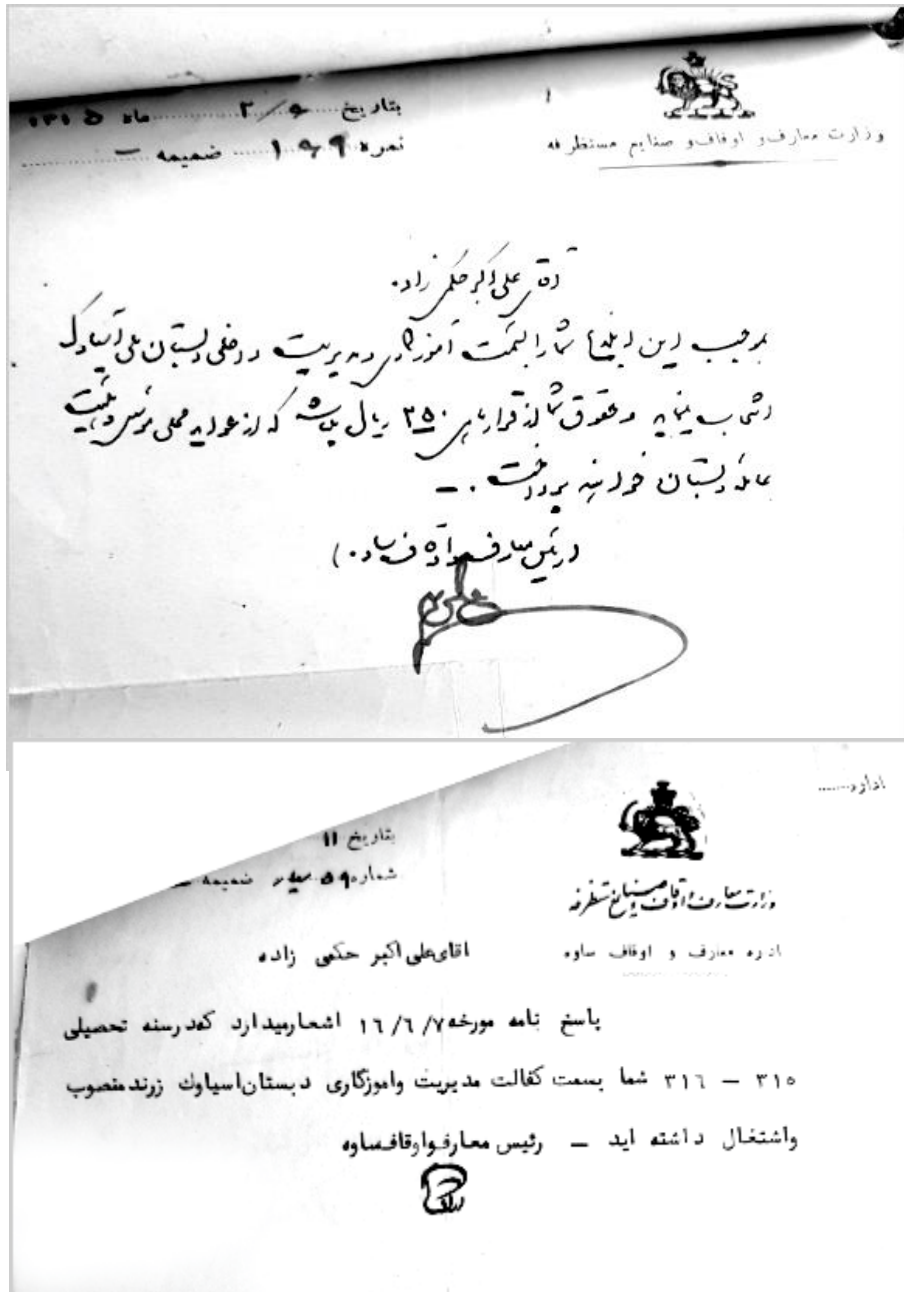 وزارت معارف و اوقاف و صنایع مستظرفه
بتاریخ ۲/۹ ماه ۱۳۱۵
نمره ۱۶۹ ضمیمه –
آقای علی اکبر حکمی زاده
بموجب این ابلاغ شما را بسمت آموزگاری و مدیریت داخلی دبستان ملی آسیاوک
انتخاب مینماید و حقوق شما از قرار ماهی ۳۵۰ ریال که از عواید محلی
دبستان خواهند پرداخت . –
رئیس معارف
اداره
وزارت معارف و اوقاف و صنایع مستظرفه
اداره معارف و اوقاف ساوه
بتاریخ ۱۱
شماره ضمیمه
اقای علی اکبر حکمی زاده
پاسخ نامه مورخه ۱۶/۶/۷ اشعارمیدارد که درسنه تحصیلی
۳۱۵ – ۳۱۶ شما بسمت کفالت مدیریت واموزگاری دبستان اسیاوك زرند منصوب
واشتغال داشته اید – رئیس معارف واوقاف ساوه